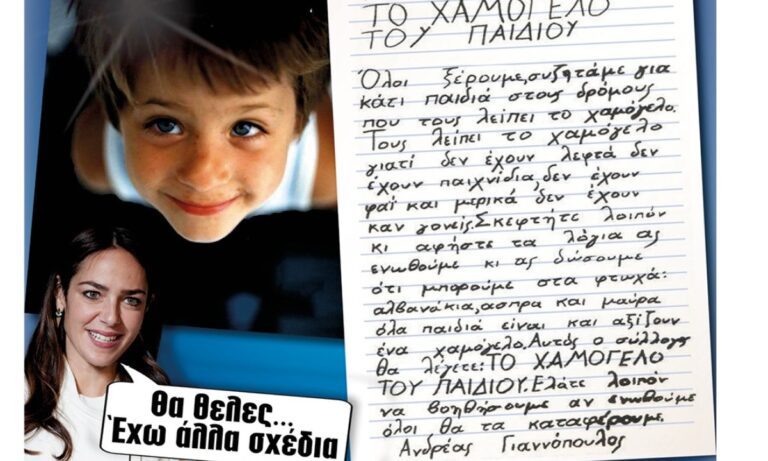 ΤΟ ΧΑΜΟΓΕΛΟ
ΤΟΥ ΠΑΙΔΙΟΥ
Όλοι ξέρουμε,συζητάμε για
κάτι παιδιά στους δρόμους
που τους λείπει το χαμόγελο.
Τους λείπει το χαμόγελο
γιατί δεν έχουν λεφτά δεν
έχουν παιχνίδια,δεν έχουν
φαϊ και μερικά δεν έχουν
καν γονείς.Σκεφτήτε λοιπόν
κι αφήστε τα λόγια ας
ενωθούμε κι ας δώσουμε
ότι μπορούμε στα φτωχά:
αλβανάκια,ασπρα και μαύρα
όλα παιδιά είναι και αξίζουν
ένα χαμόγελο.Αυτός ο σύλλογος
θα λέγετε:ΤΟ ΧΑΜΟΓΕΛΟ
ΤΟΥ ΠΑΙΔΙΟΥ.Ελάτε λοιπόν
να βοηθήσουμε αν ενωθούμε
όλοι θα τα καταφέρουμε.
Ανδρέας Γιαννόπουλος
Θα θελες...
Έχω άλλα σχέδια